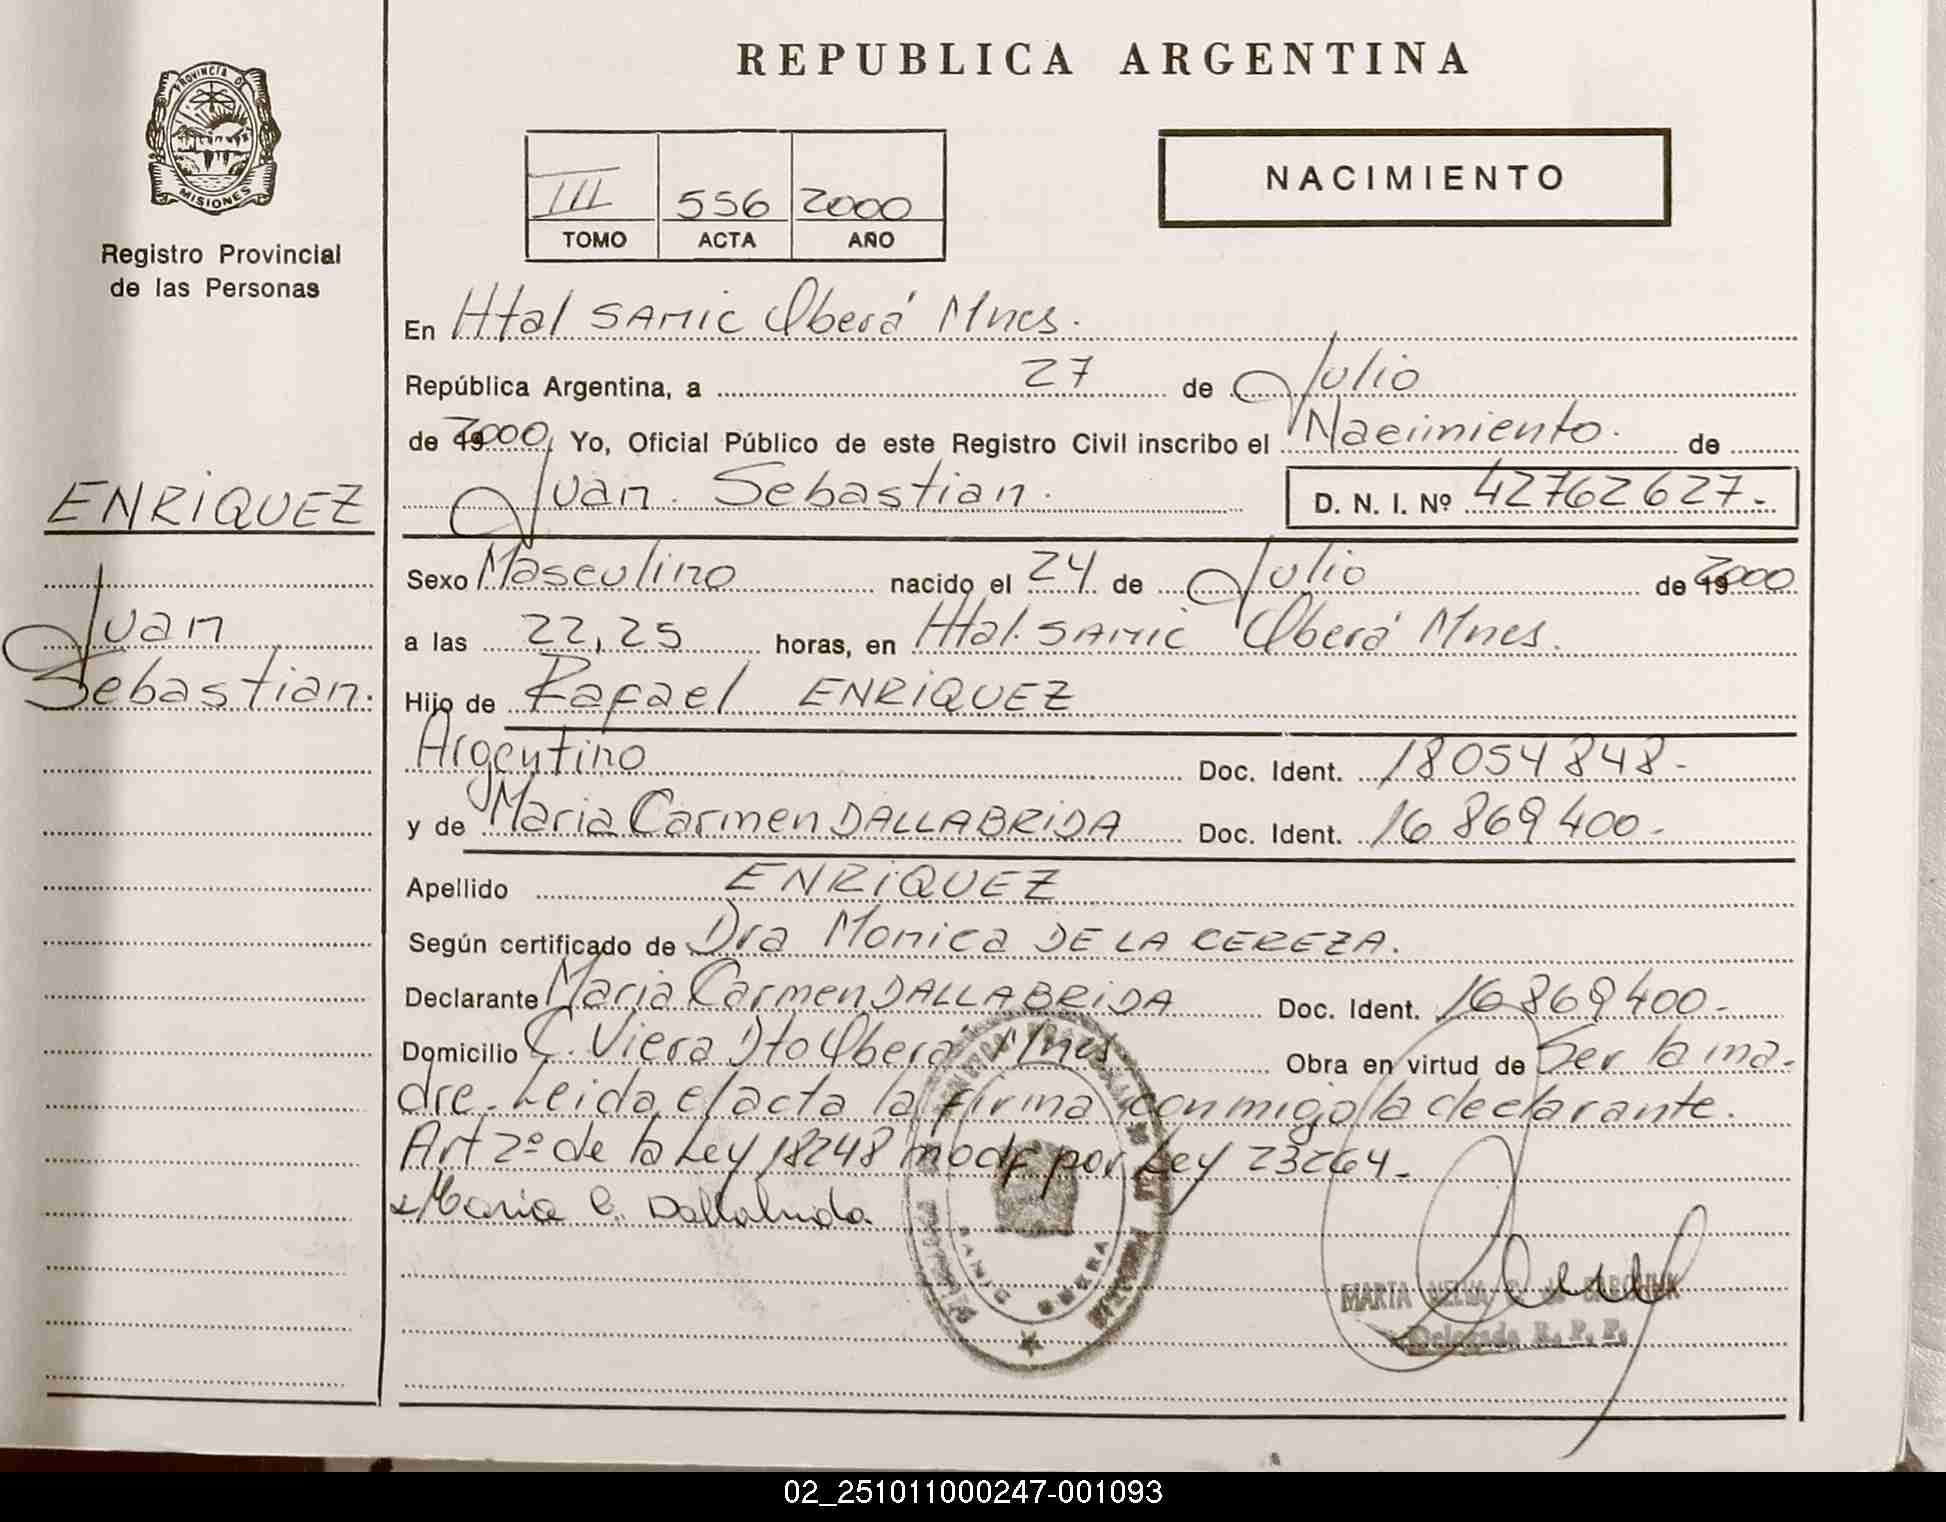 REPUBLICA ARGENTINA
PROVINCIA DE
MISIONES
Registro Provincial
de las Personas
III 556 2000
TOMO ACTA AÑO
NACIMIENTO
ENRIQUEZ
Juan
Sebastian.
En Htal SAMIC Oberá Mnes.
República Argentina, a 27 de Julio
de 2000, Yo, Oficial Público de este Registro Civil inscribo el Nacimiento. de
Juan Sebastian. D. N. I. Nº 42762627-
Sexo Masculino nacido el 24 de Julio de 2000
a las 22,25 horas, en Htal. SAMIC Oberá Mnes.
Hijo de Rafael ENRIQUEZ
Argentino Doc. Ident. 18054848-
y de Maria Carmen DALLABRIDA Doc. Ident. 16869400-
Apellido ENRIQUEZ
Según certificado de Dra Monica DE LA CEREZA.
Declarante Maria Carmen DALLABRIDA Doc. Ident. 16869400-
Domicilio C. Viera Dto Oberá Mnes Obra en virtud de Ser la ma-
dre. Leida el acta la firma conmigo la declarante.
Art 2º de la Ley 18248 modf por Ley 23264-
Maria C. Dallabrida
MARTA
Delegada R. P. P.
02_251011000247-001093